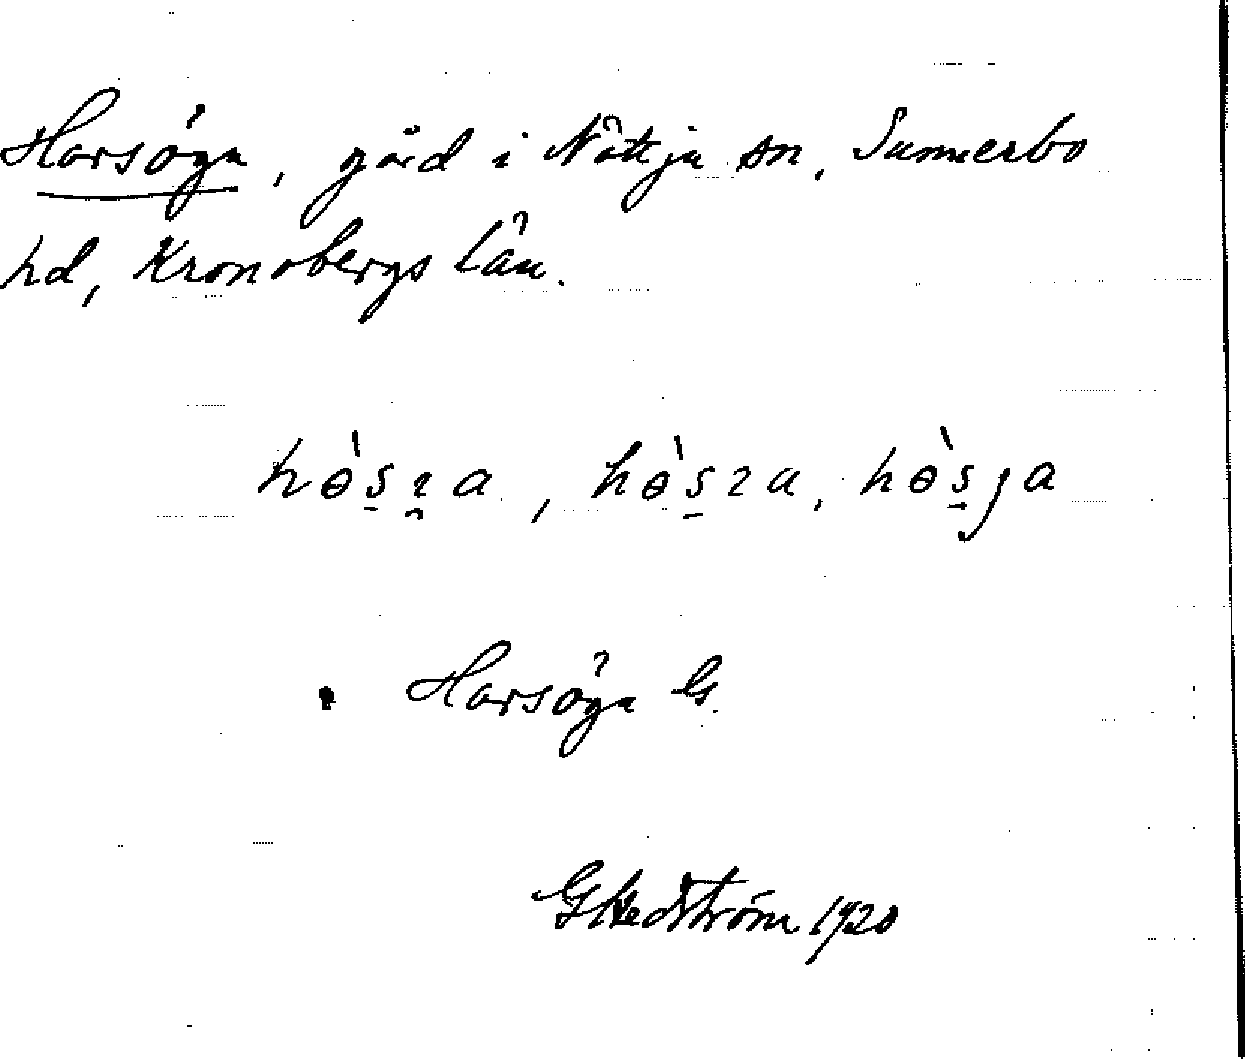 Horsöga, gård i Nöttja sn, Sunnerbo
hd, Kronobergs län.
hòs̱ɿ̯a, hòs̱ɿa, hòs̱ja
Horsöga G.
G Hedström 1920